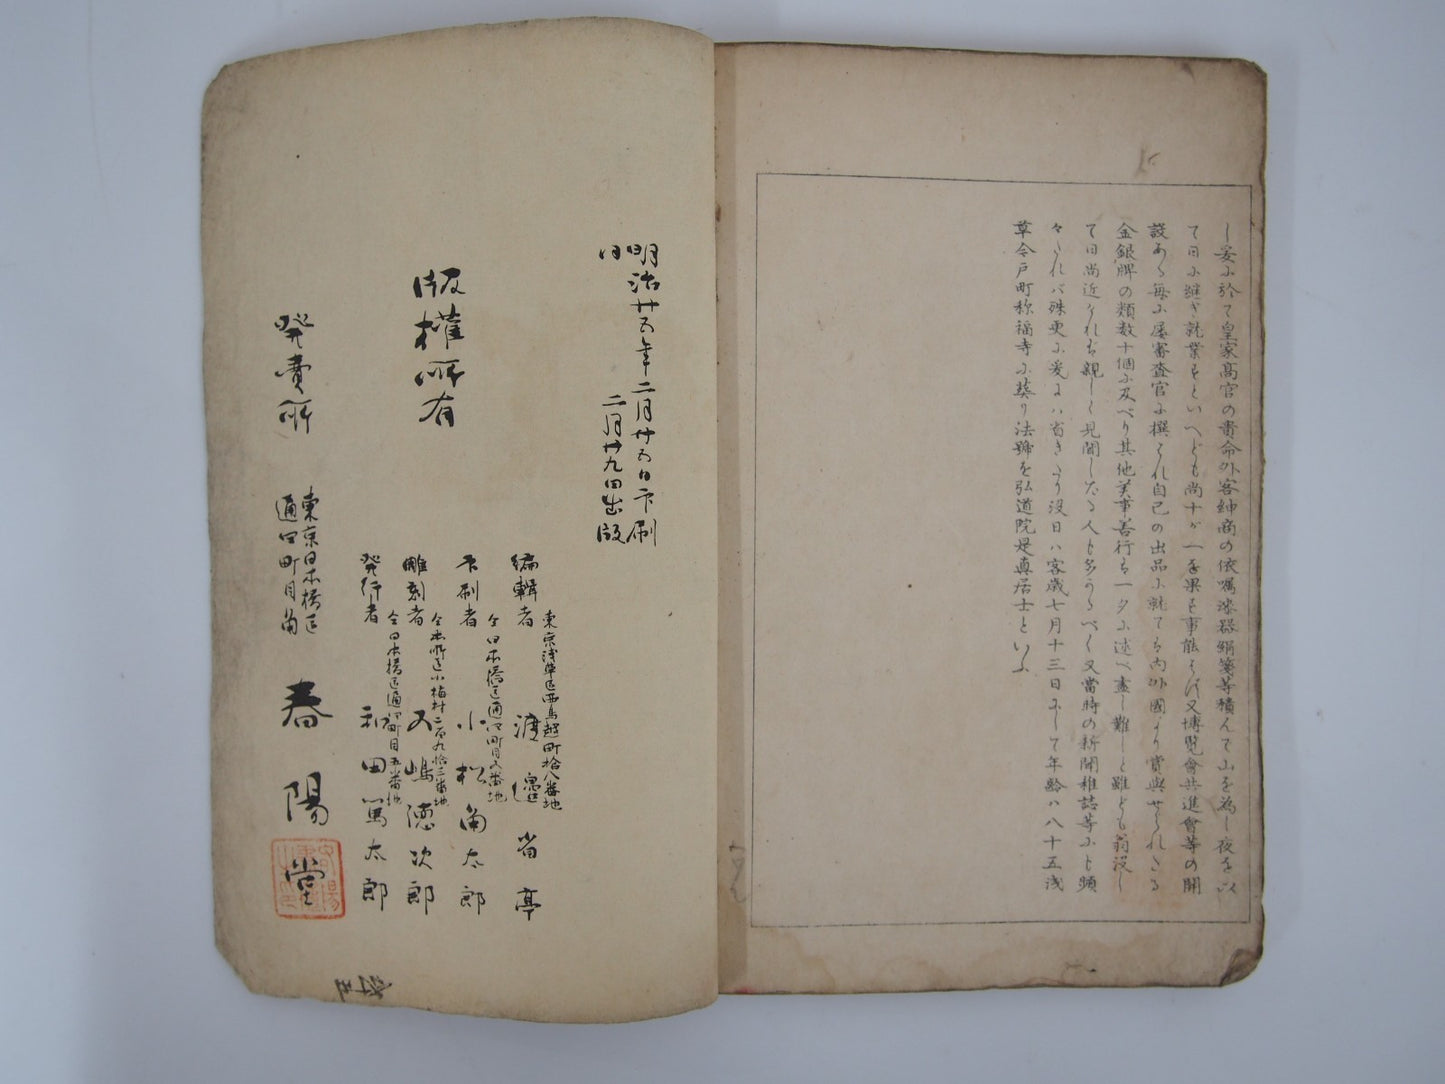 し妥に於て皇家高官の貴命外客紳商の依嘱漆器絹箋等積んで山を為し夜を以
て日に継ぎ就業すといへども尚十が一を果す事能はず又博覧會共進會等の開
設ある毎に屡審査官に撰ばれ自己の出品に就ても内外國より賞與せられたる
金銀牌の類数十個に及べり其他美事善行も一夕に述べ盡し難しと雖ども翁没し
て日尚近ければ親しく見聞したる人も多かるべく又當時の新聞雑誌等にも頻
々たれバ殊更に爰にハ省きたり没日ハ客歳七月十三日にして年齢ハ八十五浅
草今戸町称福寺に葬り法號を弘道院是真居士といふ
明治廿五年二月廿五日印刷
同 二月廿九日出版
版權所有
東京浅草区西鳥越町拾八番地
編輯者 渡邉省亭
仝日本橋区通四町目五番地
印刷者 小松角太郎
仝本所区小梅村二百九拾三番地
雕刻者 五嶋徳次郎
仝日本橋区通四町目五番地
発行者 和田篤太郎
東京日本橋区
通四町目角
発賣所 春陽堂